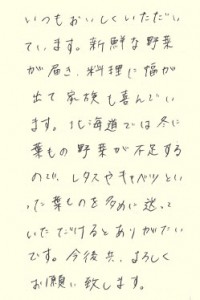 いつもおいしくいただい
ています。新鮮な野菜
が届き、料理に幅が
出て家族も喜んでい
ます。北海道では冬に
葉もの野菜が不足する
ので、レタスやキャベツとい
った葉ものを多めに送って
いただけるとありがたい
です。今後共、よろしく
お願い致します。